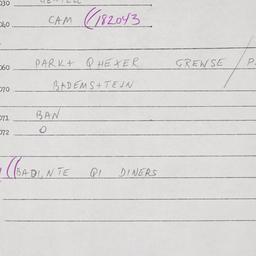 030
040 CAM 182043
060 PARK+ Q HEXER GREWSE
070 BADEMS+TEIN
071 BAN
072 O
BADI, NTE QI DINERS